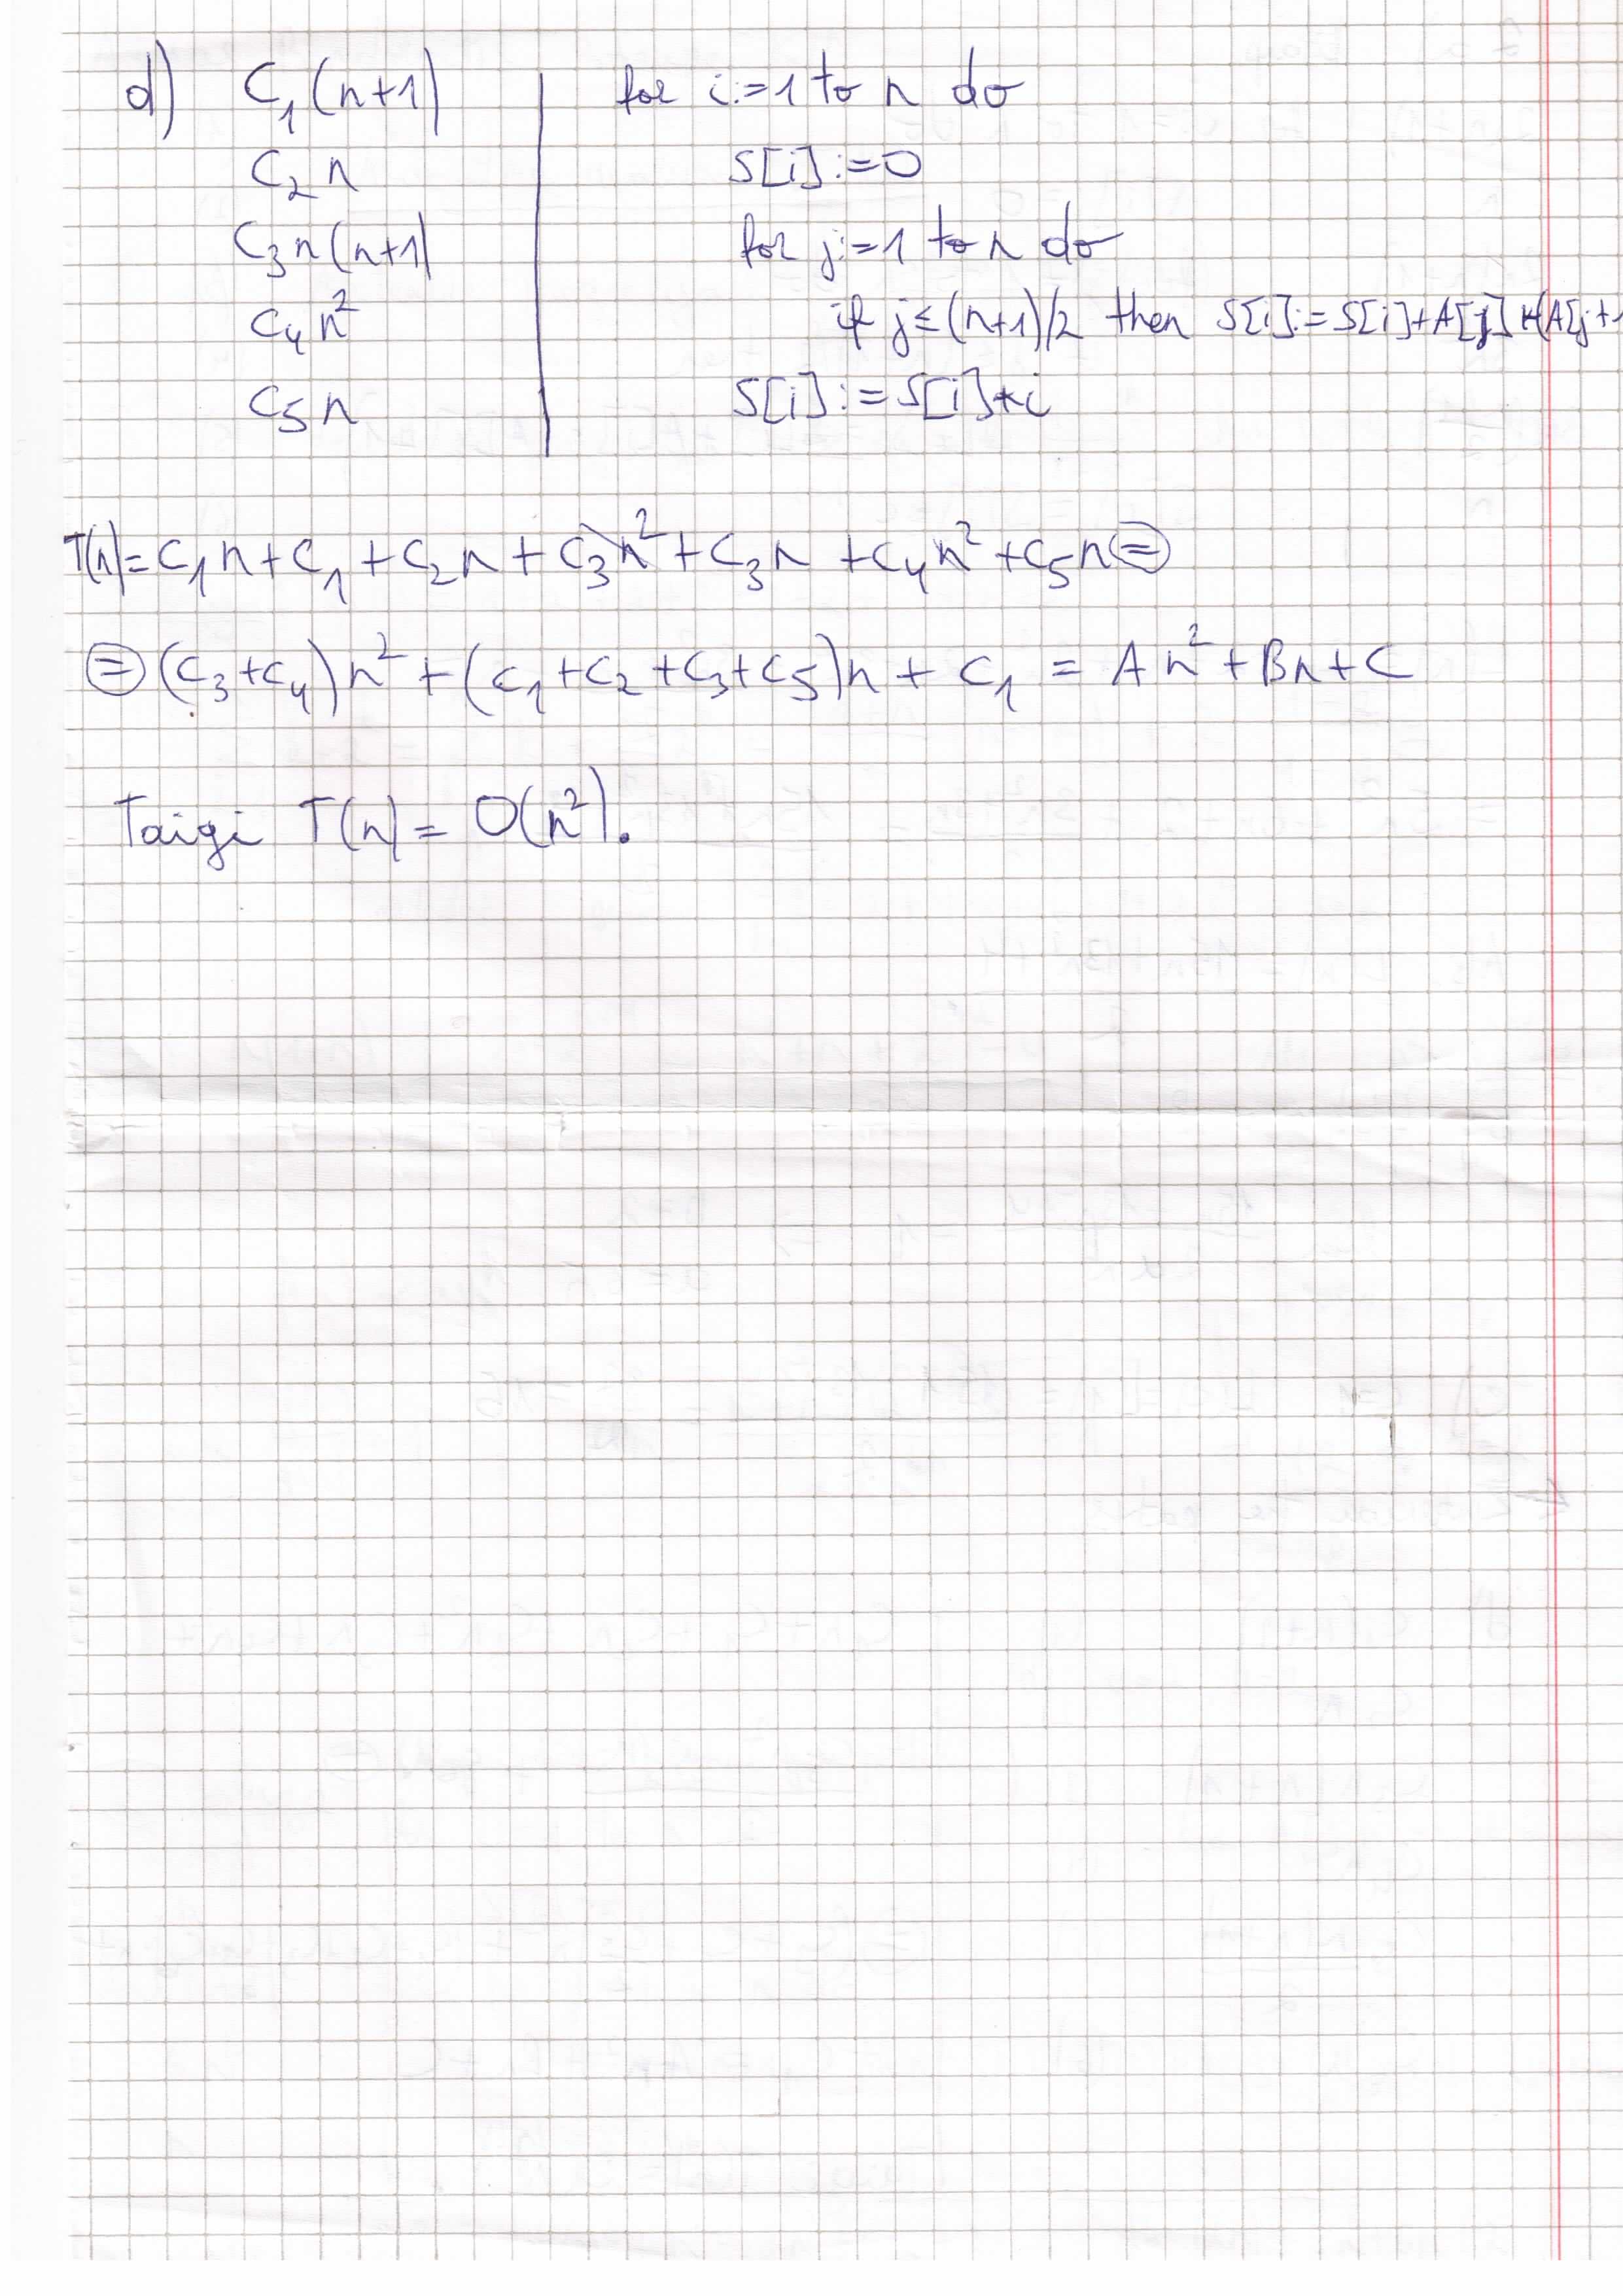 d) C₁(n+1) | for i:=1 to n do
C₂ n | S[i]:=0
C₃n(n+1) | for j:=1 to n do
C₄ n² | if j≤(n+1)/2 then S[i]:=S[i]+A[j]*(A[j+1
C₅ n | S[i]:=S[i]*i
T(n)=C₁n+C₁+C₂n+C₃n²+C₃n+C₄n²+C₅n⊜
⊜(C₃+C₄)n²+(C₁+C₂+C₃+C₅)n+C₁=An²+Bn+C
Taigi T(n)=O(n²).